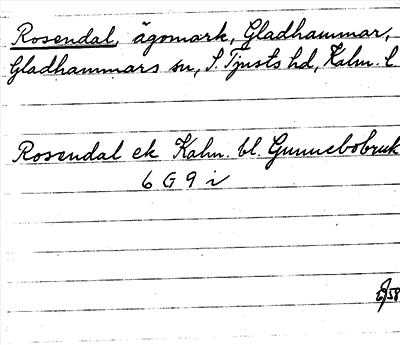 Rosendal, ägomark, Gladhammar,
Gladhammars sn, S. Tjusts hd, Kalm. l.
Rosendal ek Kalm. bl. Gunnebobruk
6 G 9 i